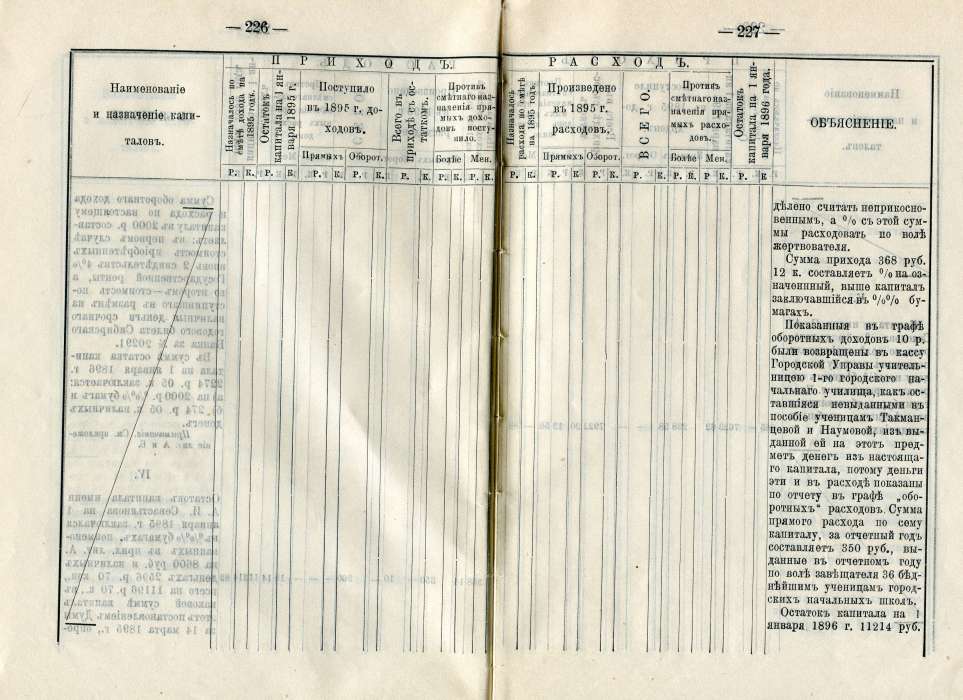 — 226 —
ПРИХОДЪ.
Наименованіе
и назначеніе капи-
таловъ.
Назначалось по
смѣтѣ дохода на
1895 годъ.
Остатокъ
капитала на 1 ян-
варя 1895 г.
Поступило
въ 1895 г. до-
ходовъ.
Прямыхъ
Оборот.
Всего въ
приходѣ съ ос-
таткомъ.
Противъ
смѣтнаго наз-
наченія пря-
мыхъ дохо-
довъ посту-
пило.
Болѣе
Мен.
Р. К. Р. К. Р. К. Р. К. Р. К. Р. К. Р. К.
— 227 —
РАСХОДЪ.
Назначалось
расхода по смѣтѣ
на 1895 годъ.
Произведено
въ 1895 г.
расходовъ.
Прямыхъ
Оборот.
ВСЕГО.
Противъ
смѣтнаго наз-
наченія пря-
мыхъ расхо-
довъ.
Болѣе
Мен.
Остатокъ
капитала на 1 ян-
варя 1896 года.
ОБЪЯСНЕНІЕ.
Р. К. Р. К. Р. К. Р. К. Р. К. Р. К. Р. К
дѣлено считать неприкосно-
веннымъ, а % съ этой сум-
мы расходовать по волѣ
жертвователя.
Сумма прихода 368 руб.
12 к. составляетъ % на оз-
наченнный, выше капиталъ
заключавшійся въ %% бу-
магахъ.
Показанныя въ графѣ
оборотныхъ доходовъ 10 р.
были возвращены въ кассу
Городской Управы учитель-
ницею 1-го городского на-
чальнаго училища, какъ ос-
тавшіяся невыданными въ
пособіе ученицамъ Такман-
цевой и Наумовой, изъ вы-
данной ей на этотъ пред-
метъ денегъ изъ настояща-
го капитала, потому деньги
эти и въ расходѣ показаны
по отчету въ графѣ „обо-
ротныхъ“ расходовъ. Сумма
прямого расхода по сему
капиталу, за отчетный годъ
составляетъ 350 руб., вы-
данные въ отчетномъ году
по волѣ завѣщателя 36 бѣд-
нѣйшимъ ученицамъ город-
скихъ начальныхъ школъ.
Остатокъ капитала на 1
января 1896 г. 11214 руб.